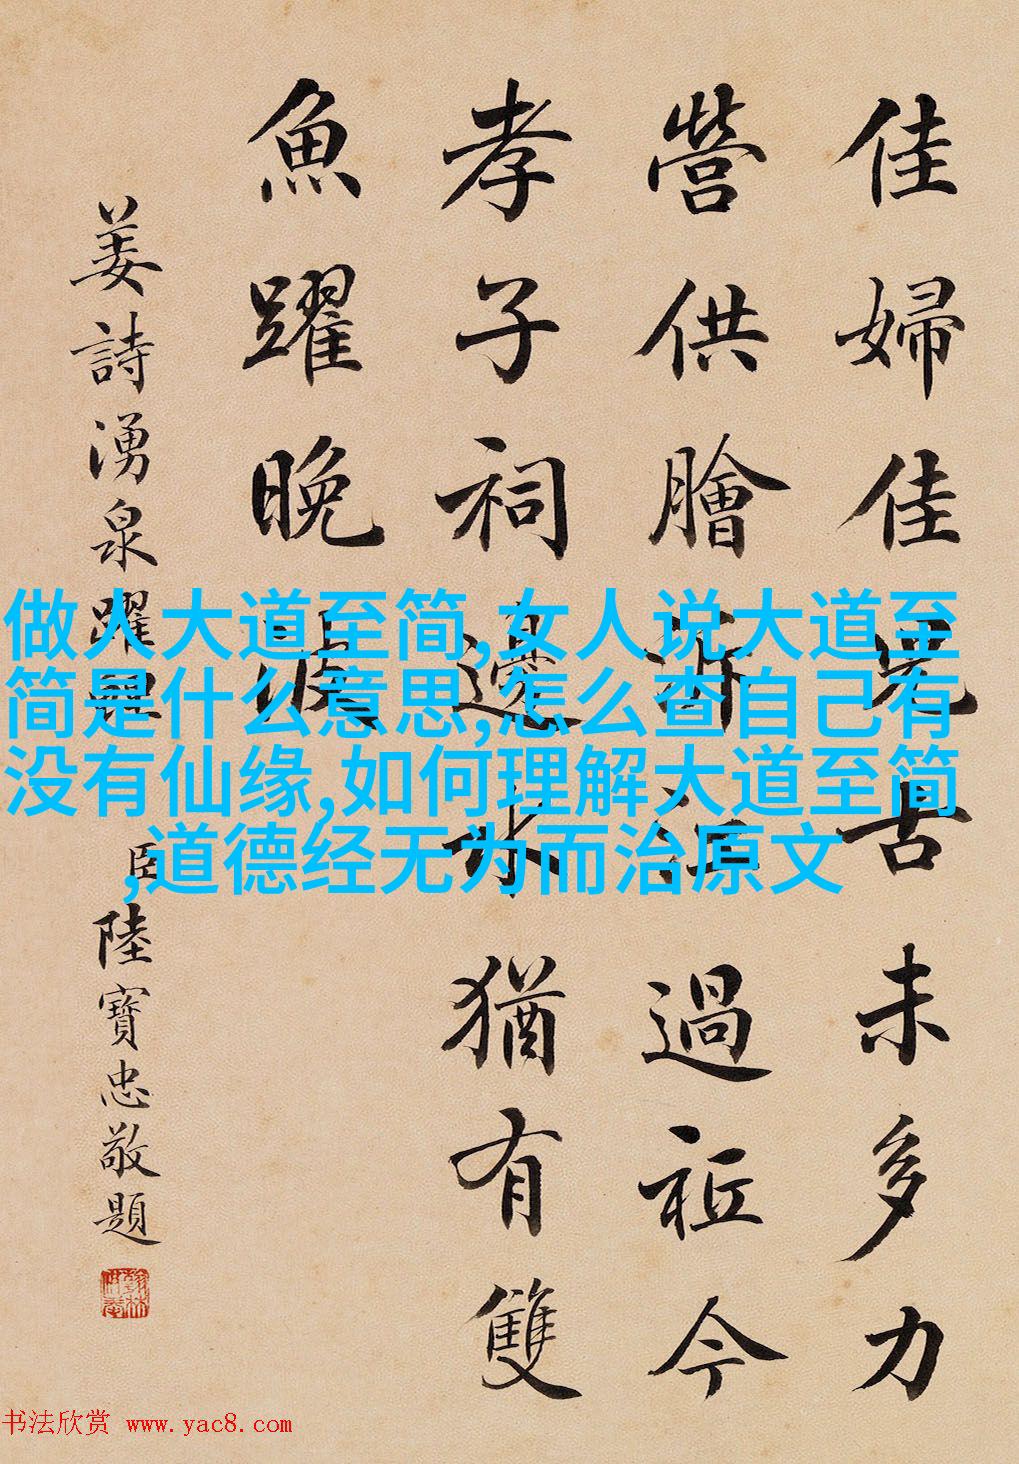 佳婦佳兒古未多力
營供膾泝江過祗今
孝子祠邊水猶有雙
魚躍晚波
姜詩湧泉躍鯉
臣陸寶忠敬題
做人大道至简,女人说大道至
简是什么意思,怎么查自己有
没有仙缘,如何理解大道至简
,道德经无为而治原文
书法欣赏 www.yac8.com